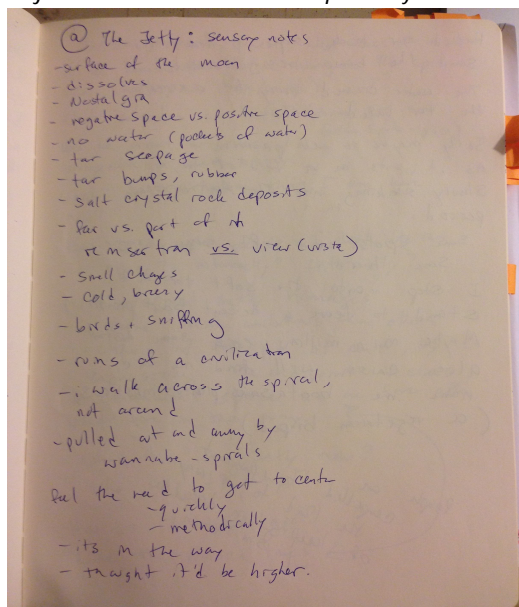 @ The Jetty: sensory notes
- surface of the moon
- dissolves
- Nostalgia
- negative space vs. positive space
- no water (pockets of water)
- tar seepage
- tar bumps, rubber
- salt crystal rock deposits
- far vs. part of it
vs. view (vista)
- smell changes
- cold, briny
- birds + sniffing
- ruins of a civilization
- i walk across the spiral,
not around
- pulled out and away by
wannabe-spirals
feel the need to get to center
- quickly
- methodically
- its in the way
- thought it'd be higher.